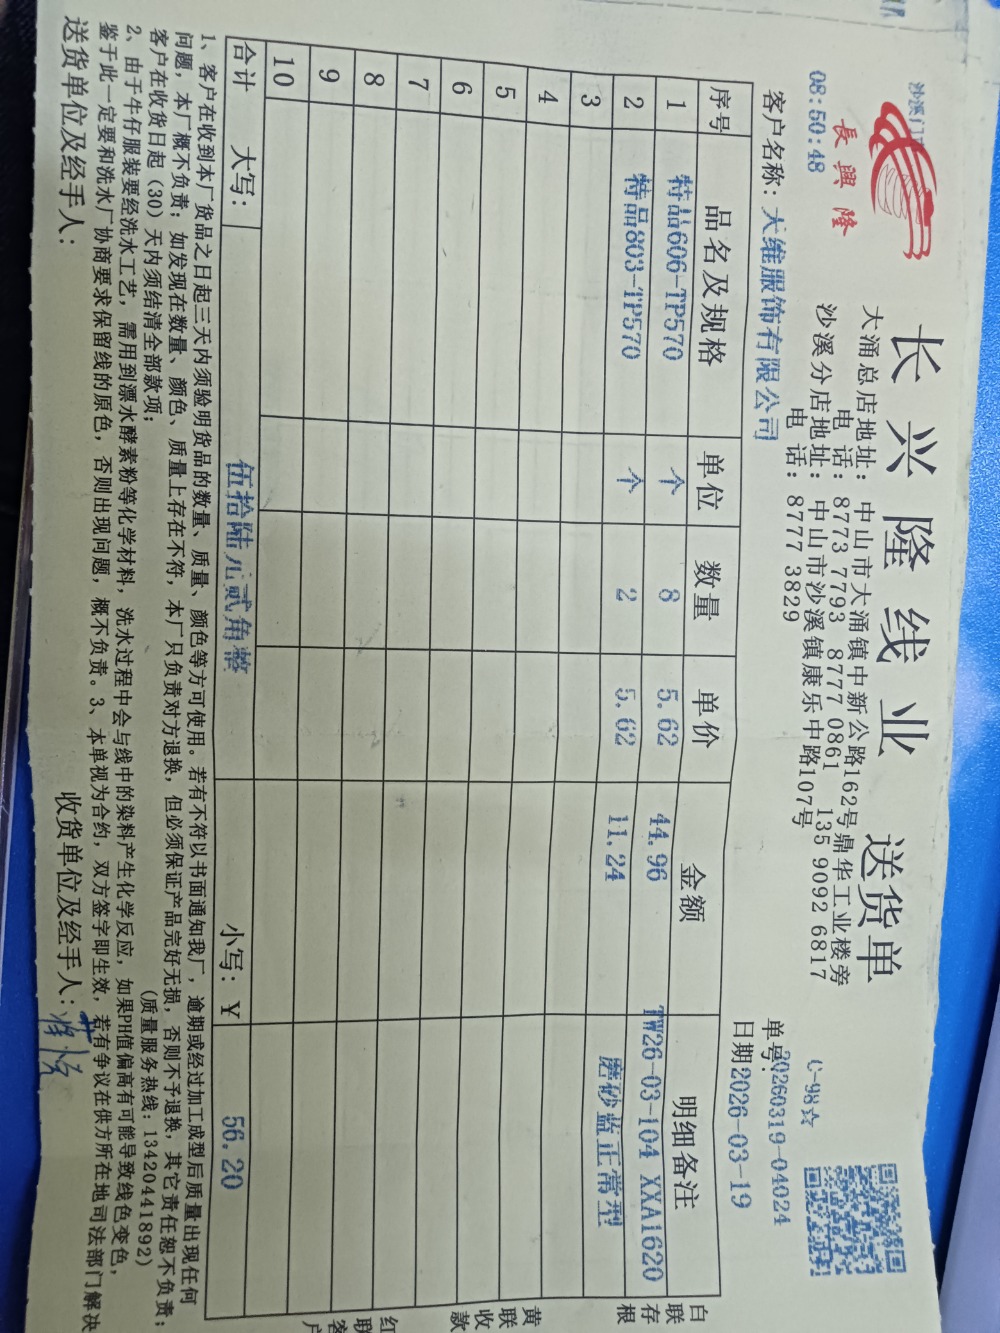 長興隆
长兴隆线业 送货单
C-98☆
08:50:48
大涌总店地址：中山市大涌镇中新公路162号鼎华工业楼旁
电话：8773 7793 8777 0861 135 9092 6817
沙溪分店地址：中山市沙溪镇康乐中路107号
电话：8777 3829
单号：20260319-04024
客户名称：大维服饰有限公司
日期2026-03-19
序号 品名及规格 单位 数量 单价 金额 明细备注
1 特品606-TP570 个 8 5.62 44.96 TW26-03-104 XXA1620
2 特品803-TP570 个 2 5.62 11.24 磨砂蓝正常型
3
4
5
6
7
8
9
10
合计 大写：伍拾陆元贰角整 小写：￥ 56.20
白联存根
黄联收款
红联客户
1、客户在收到本厂货品之日起三天内须验明货品的数量、质量、颜色等方可使用。若有不符以书面通知我厂，逾期或经过加工成型后质量出现任何
问题，本厂概不负责；如发现在数量、颜色、质量上存在不符，本厂只负责对方退换，但必须保证产品完好无损，否则不予退换，其它责任恕不负责；
客户在收货日起（30）天内须结清全部款项；（质量服务热线：13420441892）
2、由于牛仔服装要经洗水工艺，需用到漂水酵素粉等化学材料，洗水过程中会与线中的染料产生化学反应，如果PH值偏高有可能导致线色变色，
鉴于此一定要和洗水厂协商要求保留线的原色，否则出现问题，概不负责。3、本单视为合约，双方签字即生效，若有争议在供方所在地司法部门解决
送货单位及经手人： 收货单位及经手人：